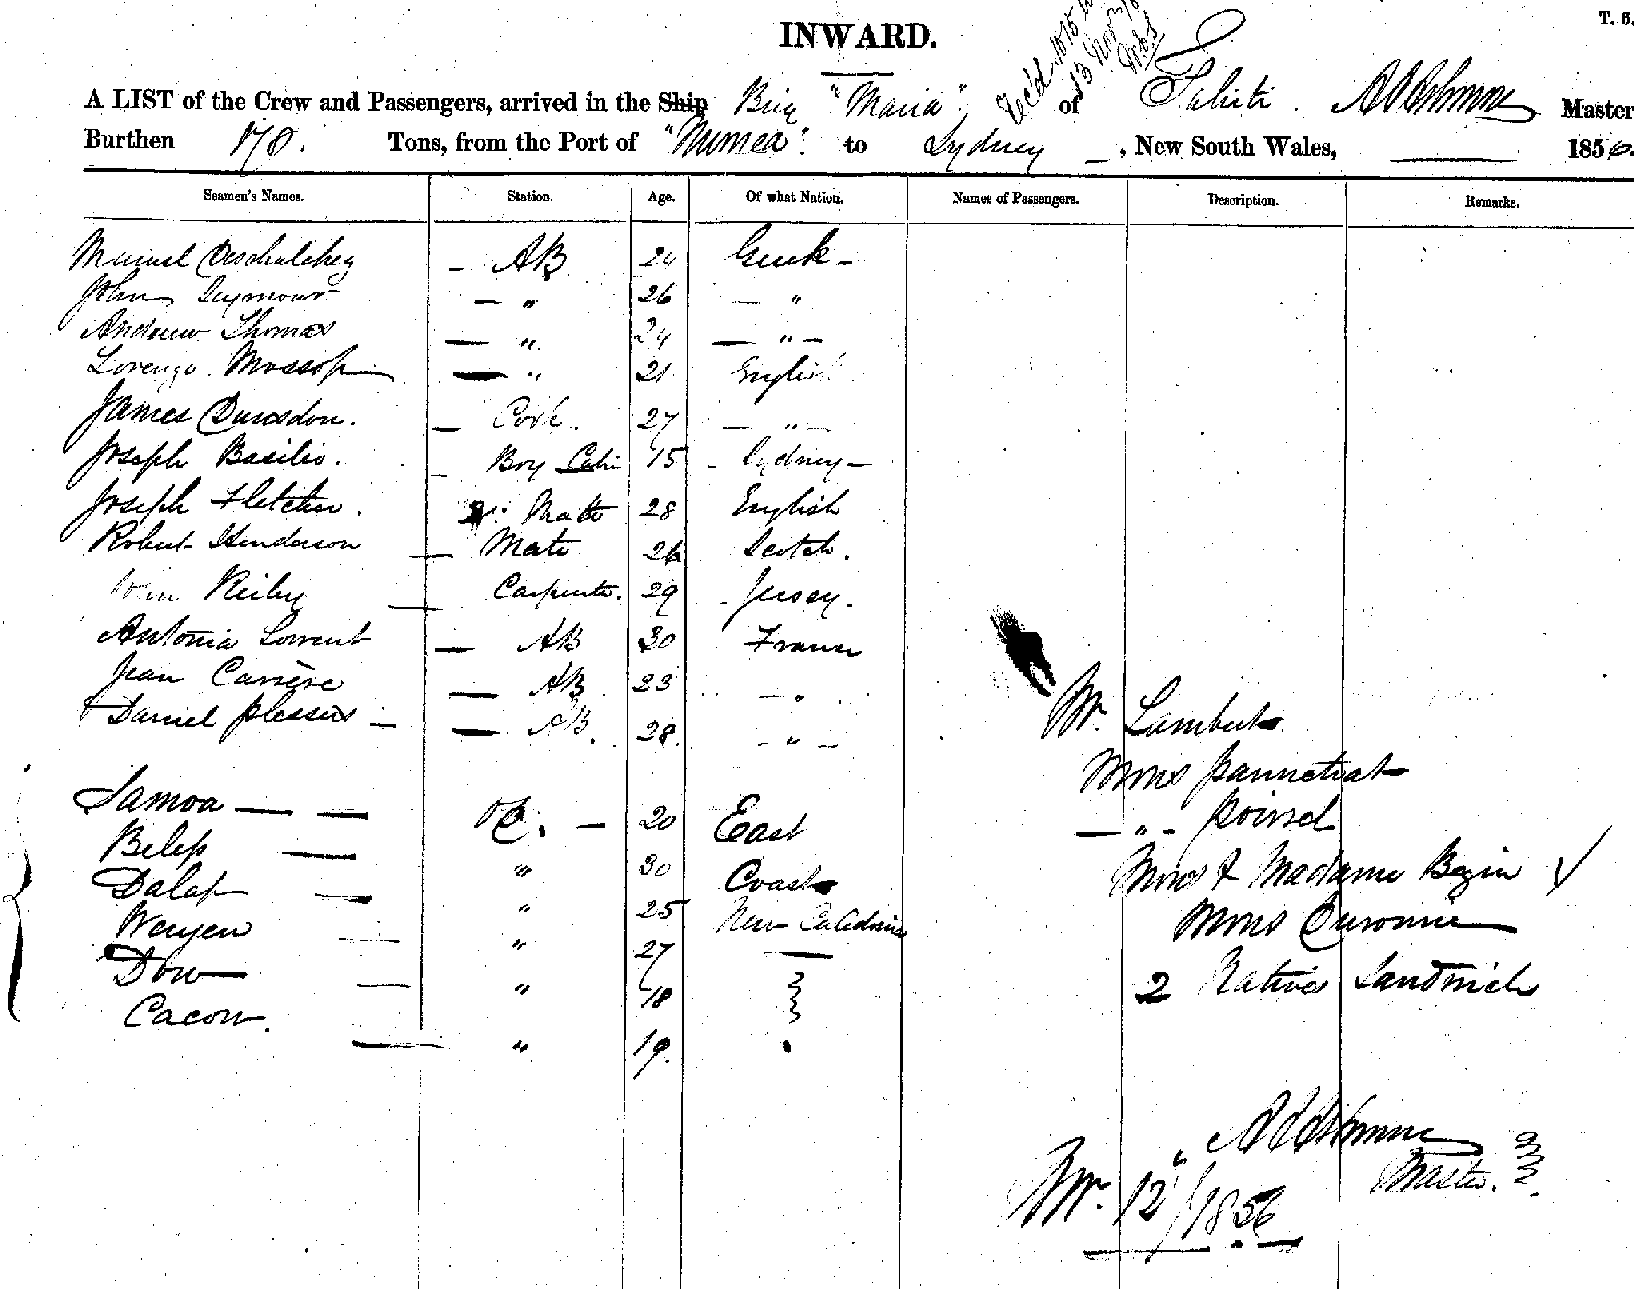 T. 6.
INWARD.
A LIST of the Crew and Passengers, arrived in the Ship Brig "Maria" of Tahiti. Master
Burthen 170. Tons, from the Port of "Numea". to Sydney, New South Wales, 1856.
Seamen's Names. Station. Age. Of what Nation. Names of Passengers. Description. Remarks.
Manuel AB 24 Greek
John Seymour " 26 "
Andrew Thomas " 24 "
Lorenzo Mossop " 21 English
James Cook 27 "
Joseph Basilio. Boy 15 Sydney
Joseph Fletcher. 2 Mate 28 English
Robert Henderson Mate 26 Scotch.
Carpenter. 29 Jersey.
Antonia AB 30 France
Jean Carrère AB 23 "
Daniel Plessis AB. 28. "
Mr. Lambert
Mons
Samoa 20 East
" Poinsel
Belep " 30 Coast
Mons & Madame Begin
Dalap " 25 New Caledonia
Wenyen " 27
Mons
Dow " 18
2 Natives Sandwich
Cacow. " 19.
Master.
Nov. 12"/1856